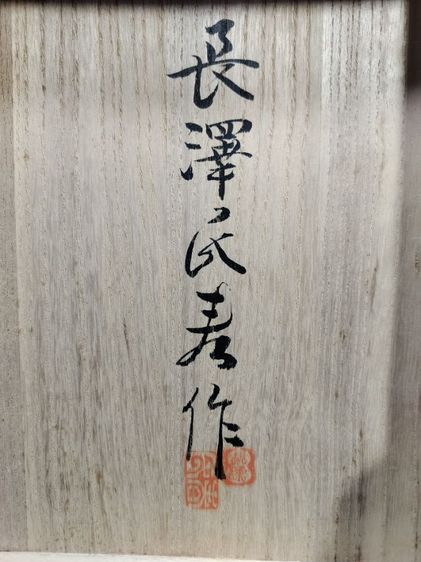 長澤氏春作